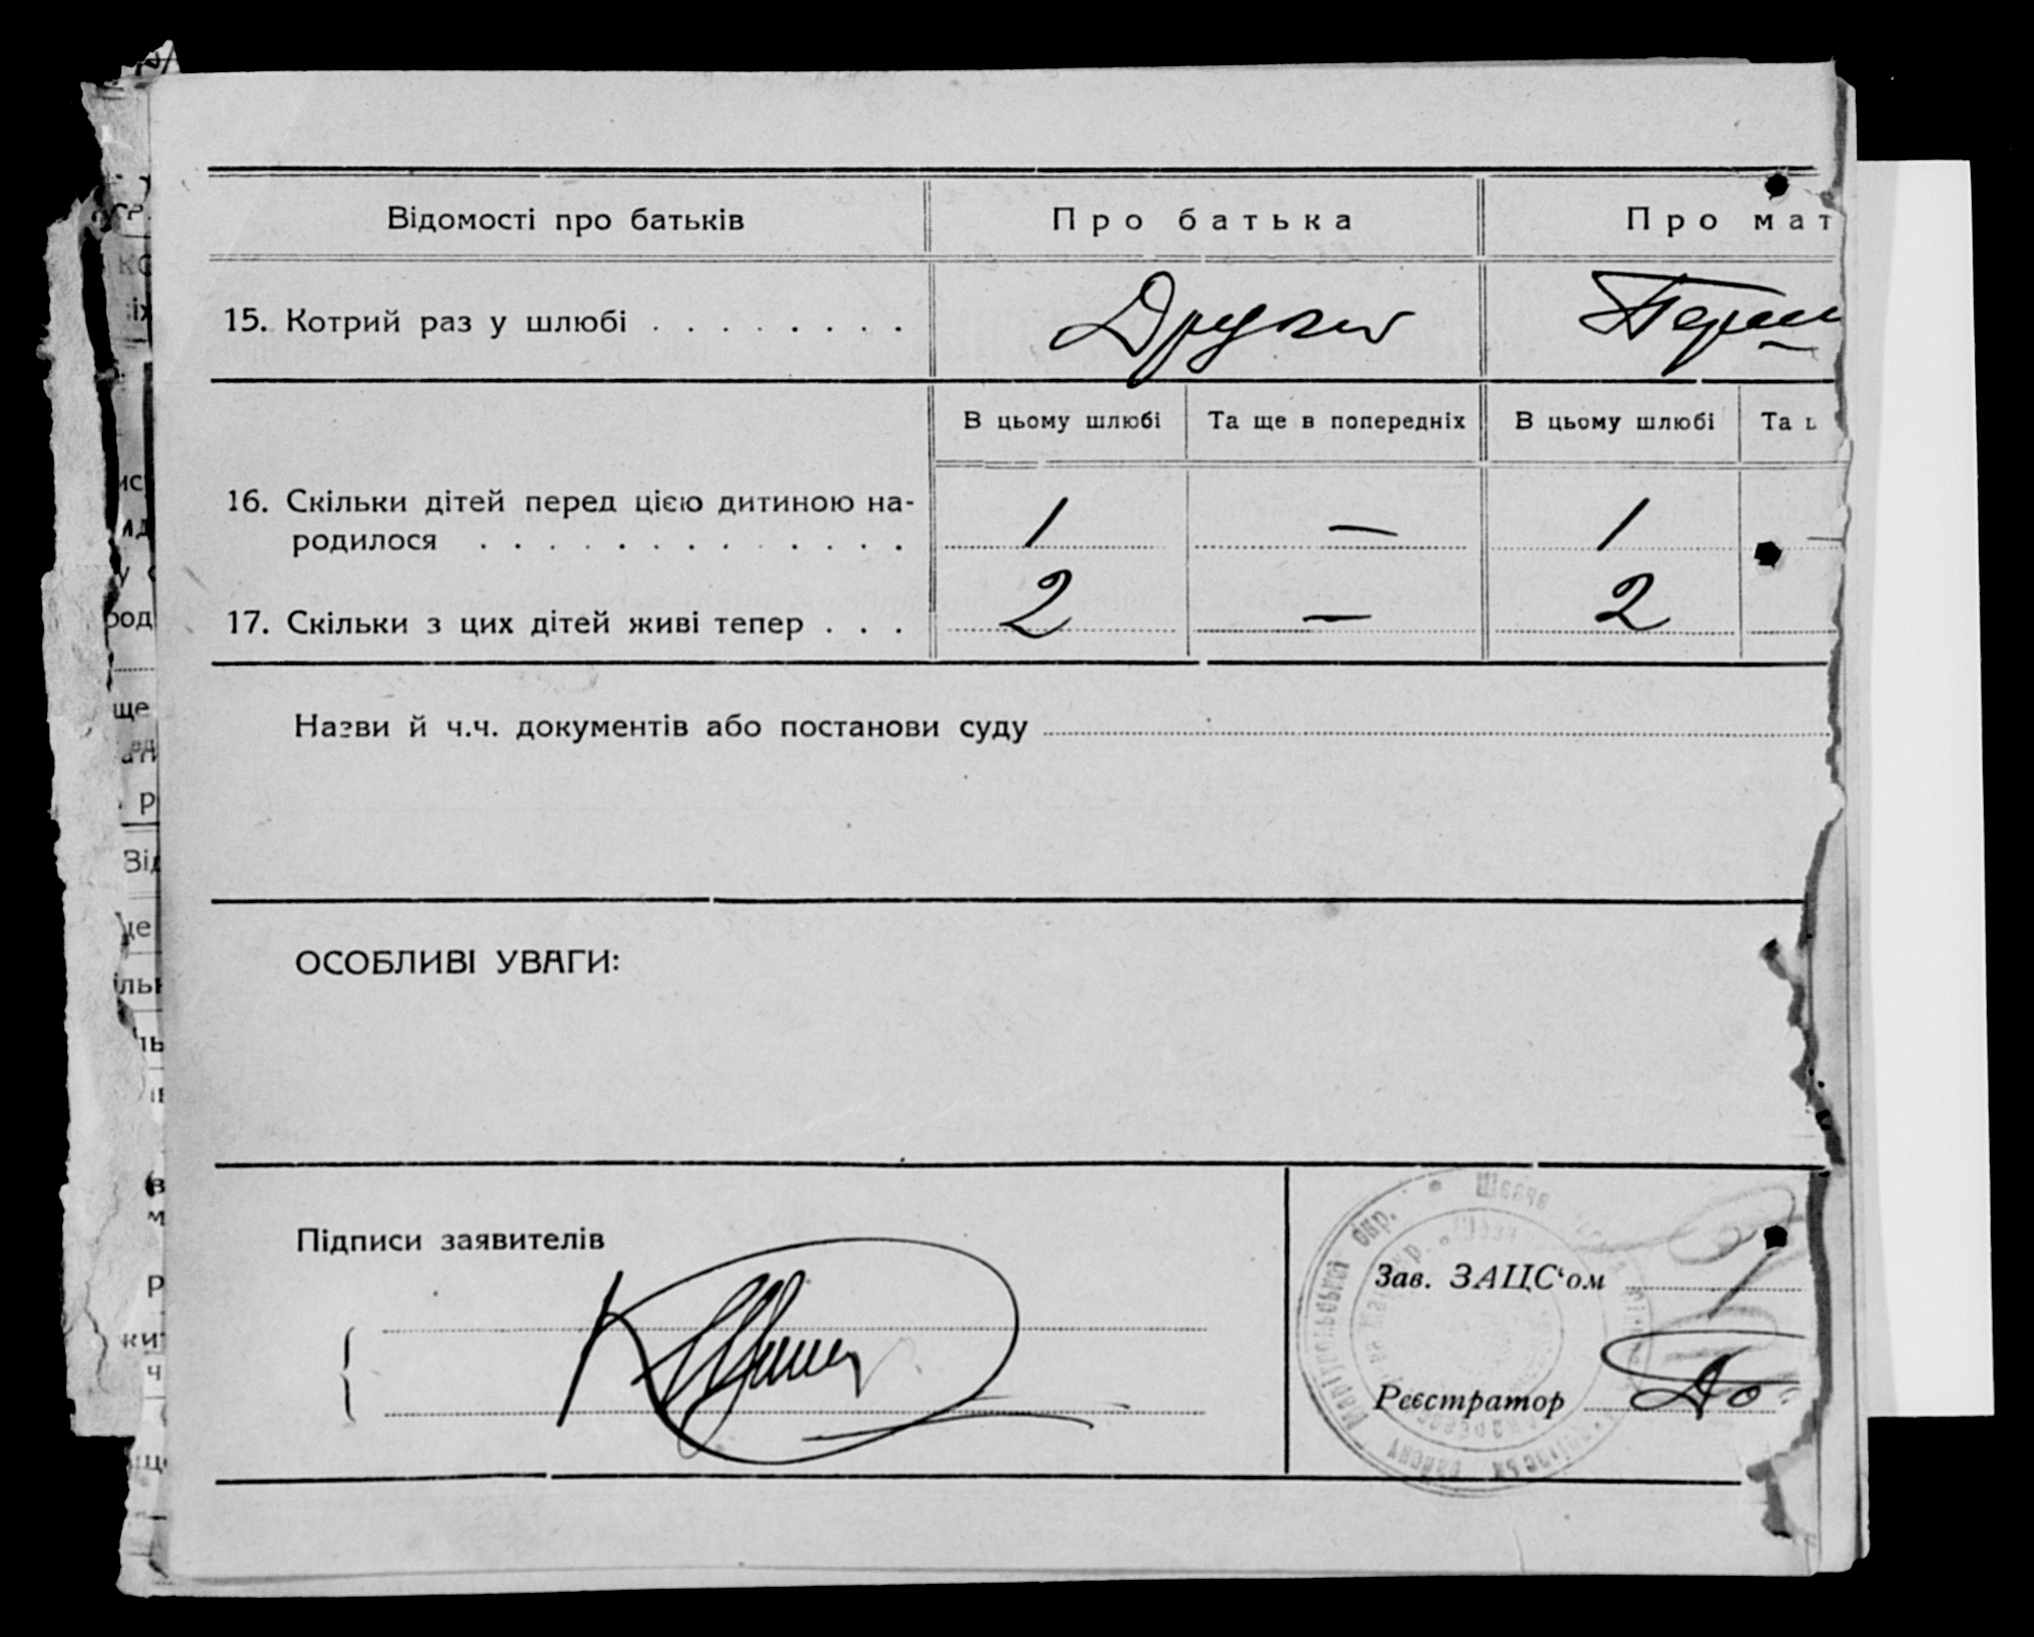 Відомості про батьків Про батька Про мат
15. Котрий раз у шлюбі . . . . . . . . Другий Перш
В цьому шлюбі Та ще в попередніх В цьому шлюбі Та
16. Скільки дітей перед цією дитиною на-
родилося . . . . . . . . . . . . . 1 — 1 —
17. Скільки з цих дітей живі тепер . . . 2 — 2
Назви й ч.ч. документів або постанови суду
ОСОБЛИВІ УВАГИ:
Підписи заявителів
Зав. ЗАЦС‘ом
Реєстратор
Маріупольської окр.
району